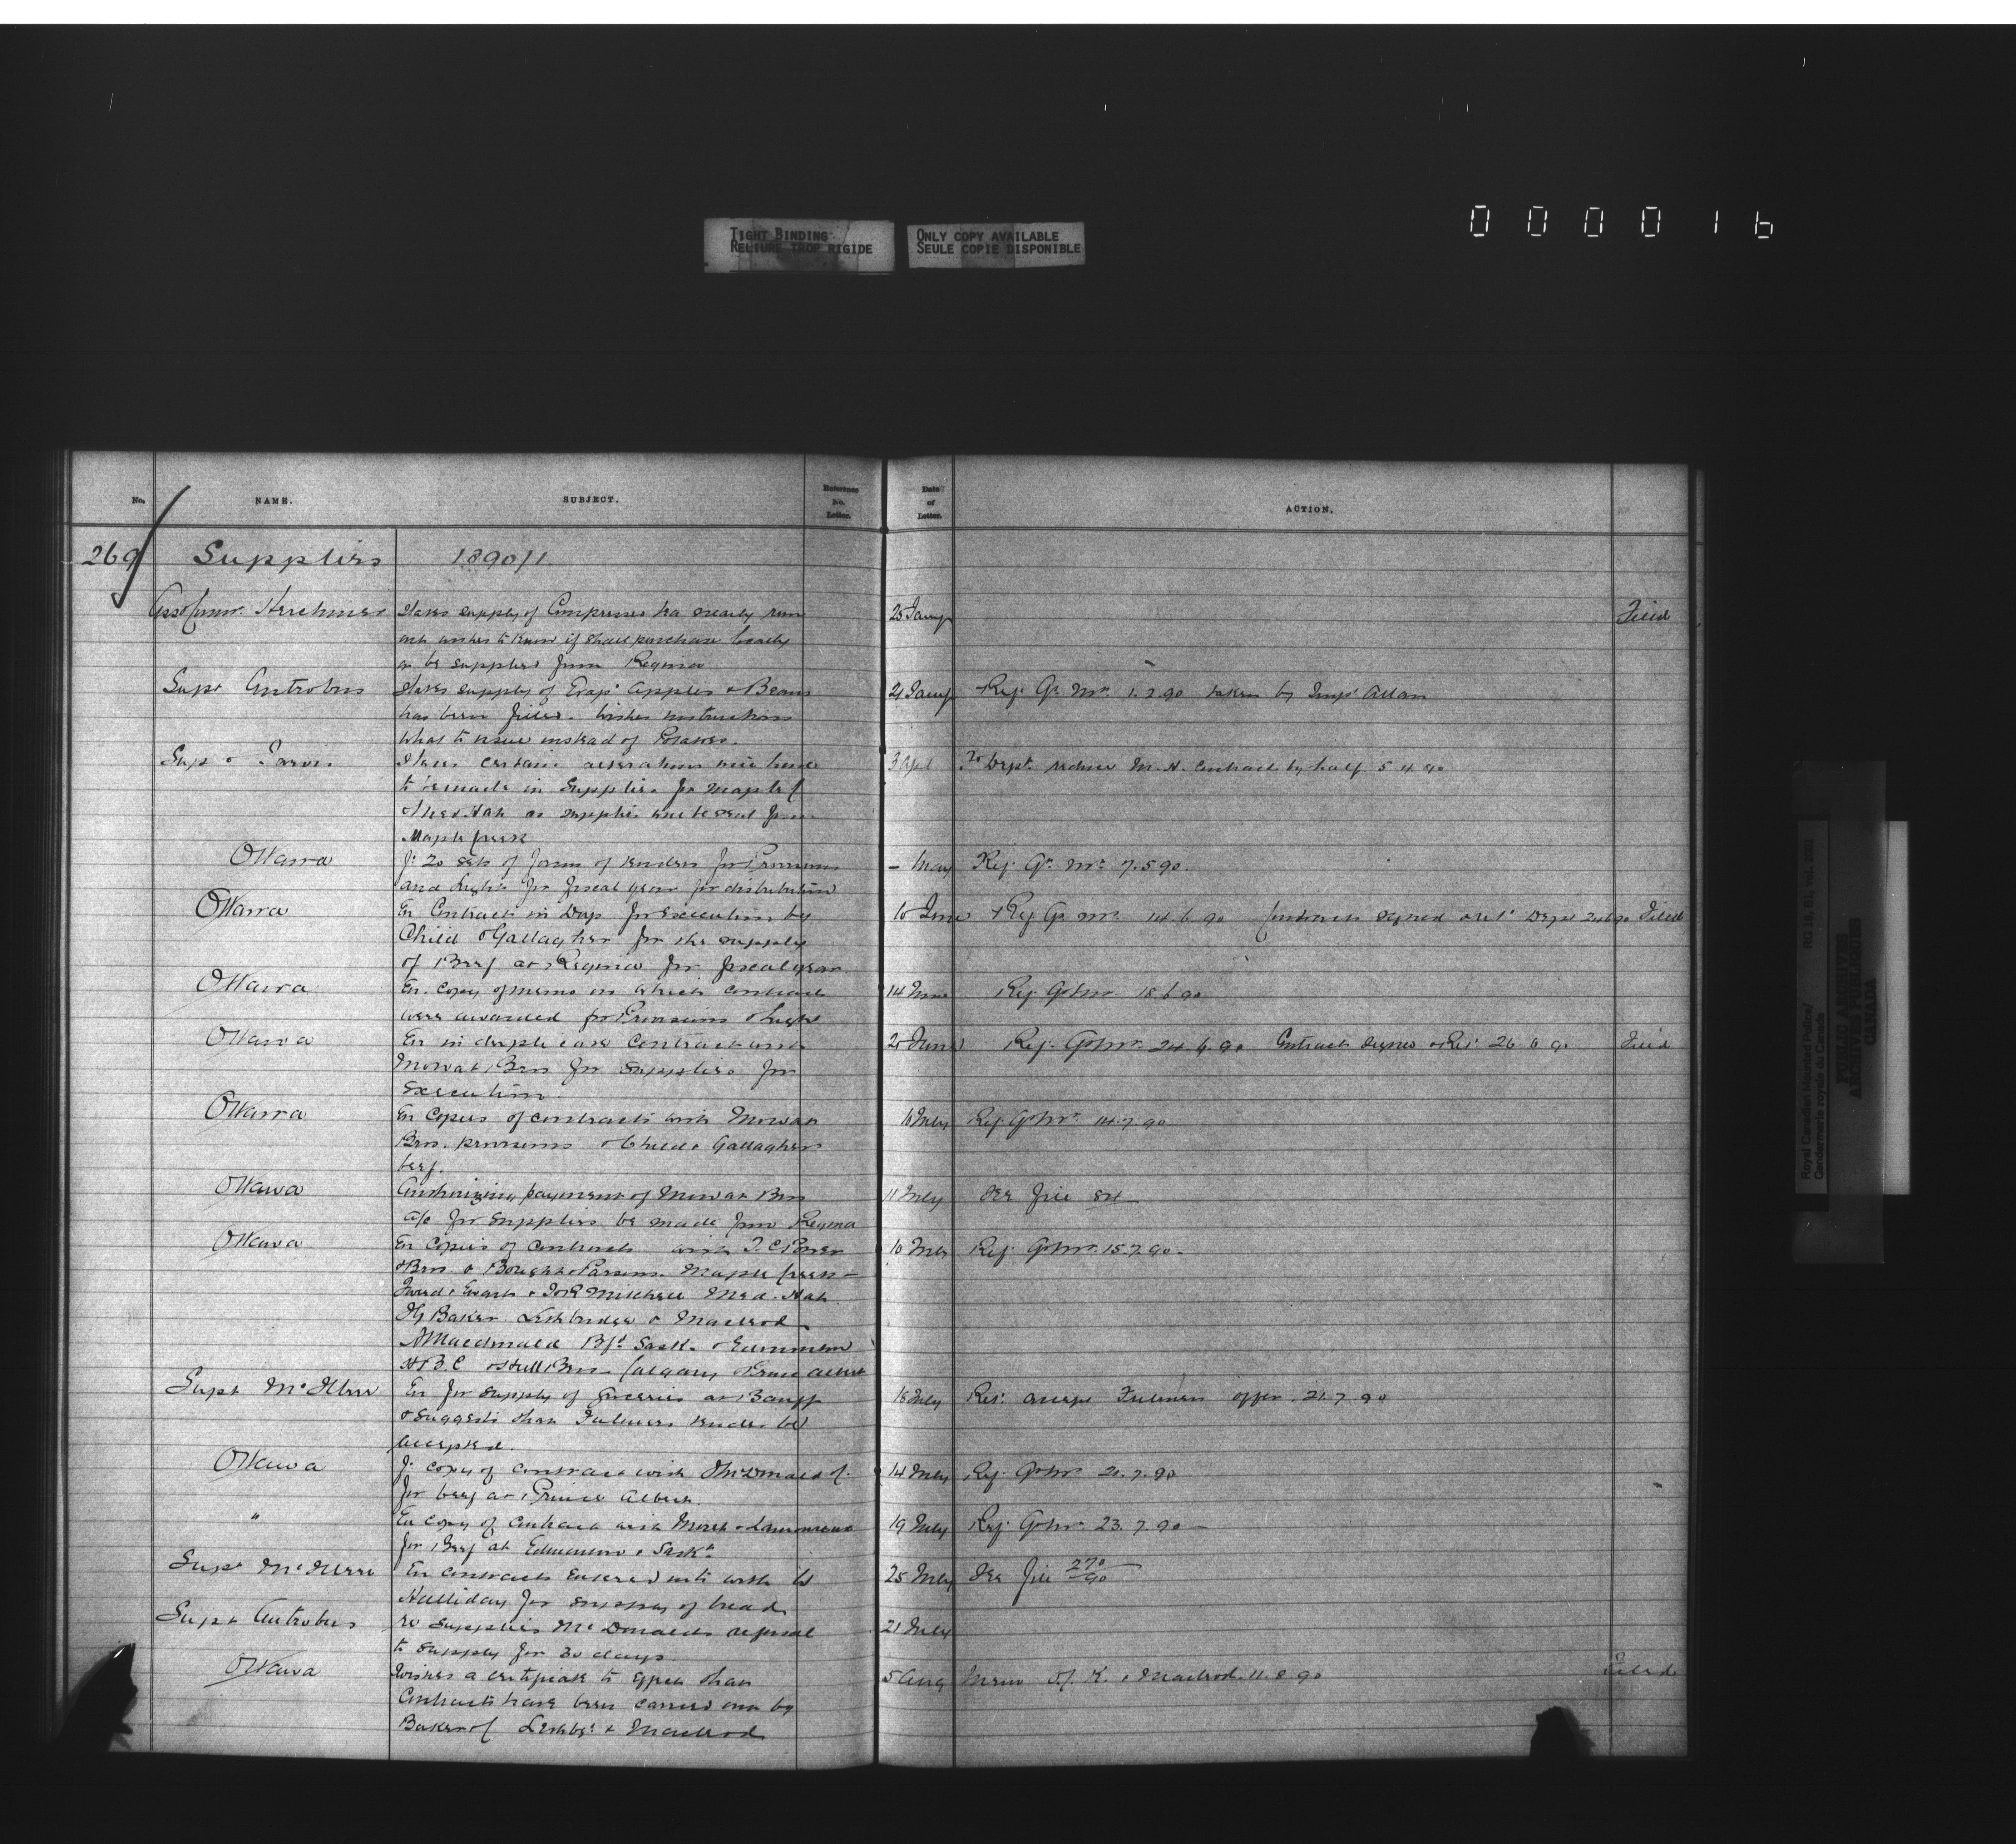 0 0 0 0 1 6
TIGHT BINDING
RELIURE TROP RIGIDE
ONLY COPY AVAILABLE
SEULE COPIE DISPONIBLE
No. NAME. SUBJECT. Reference No. Letter. Date of Letter. ACTION.
269 Supplies 1890/1
Asst Commr. Herchmer States supply of Compressed tea nearly run 25 Jany Filed
out wishes to know if shall purchase locally
or be supplied from Regina
Supt Antrobus States supply of Evapd apples & Beans 21 Jany Ref. Qr Mr. 1.2.90 taken by Inspr Allan
has been filled. Wishes instructions
what to issue instead of Potatoes.
Supt Jarvis States certain alterations will have 3 Apl To Dept. reduce M.H. Contract by half 5.4.90
to be made in Supplies for Maple C
& Med. Hat as supplies will be sent from
Maple Creek
Ottawa f. 20 sets of forms of tenders for Provisions – May Ref. Qr. Mr. 7.5.90.
and Light for fiscal year for distribution
Ottawa En Contracts in Dup for execution by 10 June Ref Qr Mr. 14.6.90 Contracts signed & ret. Dept Filed
Child & Gallagher for the supply
of Beef at Regina for fiscal year
Ottawa En. copy of memo in which contracts 14 June Ref Qr Mr 18.6.90
were awarded for Provisions & Light
Ottawa En in duplicate Contract with 20 June Ref. Qr Mr. 24.6.90 Contract signed & Ret. 26.6.90 Filed
Mowat Bros for supplies for
execution.
Ottawa En Copies of contracts with Mowat July Ref. Qr Mr. 14.7.90
Bros. provisions & Child & Gallagher
beef.
Ottawa Authorizing payment of Mowat Bros 11 July See file 84
a/c for supplies be made from Regina
Ottawa En Copies of contracts with T. C. Power 10 July Ref. Qr Mr. 15.7.90.
& Bros & Bought & Parsons Maple Creek –
Tweed & Ewart & J&R Mitchell Med. Hat
I G Baker Lethbridge & Macleod
A Macdonald Bfd Sask. & Edmonton
H B. C & Hull Bros Calgary & Prince Albert
Supt McIllree En for supply of groceries at Banff 18 July Ret. accept offer. 21.7.90
& suggests that tender be
accepted.
Ottawa f. copy of contract with 14 July Ref. Qr Mr 21.7.90
for beef at Prince Albert.
" En copy of contract with & Lamoureux 19 July Ref. Qr Mr 23.7.90
for Beef at Edmonton & Sask.
Supt McIllree En contracts entered into with W 25 July See file 270/90
Halliday for supply of bread
Supt Antrobus re supplies McDonalds refusal 21 July
to supply for 30 days
Ottawa Wishes a certificate to effect that 5 Aug Memo Off. K. & Macleod. 11.8.90 Filed
Contracts have been carried out by
Baker & Co Lethbr & Macleod
Royal Canadian Mounted Police/
Gendarmerie royale du Canada
RG 18, B1, vol. 2001
PUBLIC ARCHIVES
ARCHIVES PUBLIQUES
CANADA